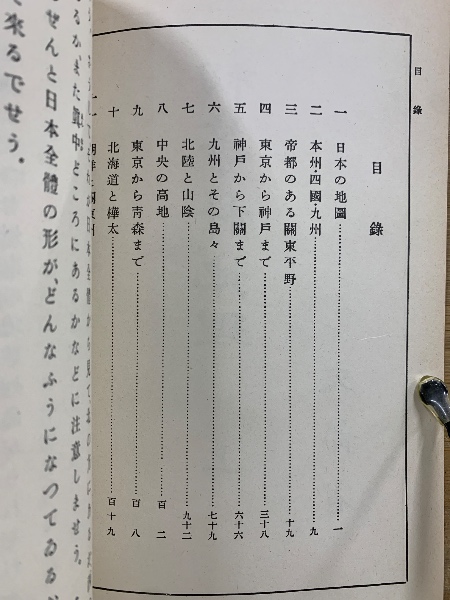 目錄
目錄
一 日本の地圖……一
二 本州・四國・九州……九
三 帝都のある關東平野……十九
四 東京から神戸まで……三十八
五 神戸から下關まで……六十六
六 九州とその島々……七十九
七 北陸と山陰……九十二
八 中央の高地……百二
九 東京から靑森まで……百八
十 北海道と樺太……百十九
るか、また眞中どころにあるかなどに注意しませう。
せんと日本全體の形が、どんなふうになつてゐるか
來るでせう。